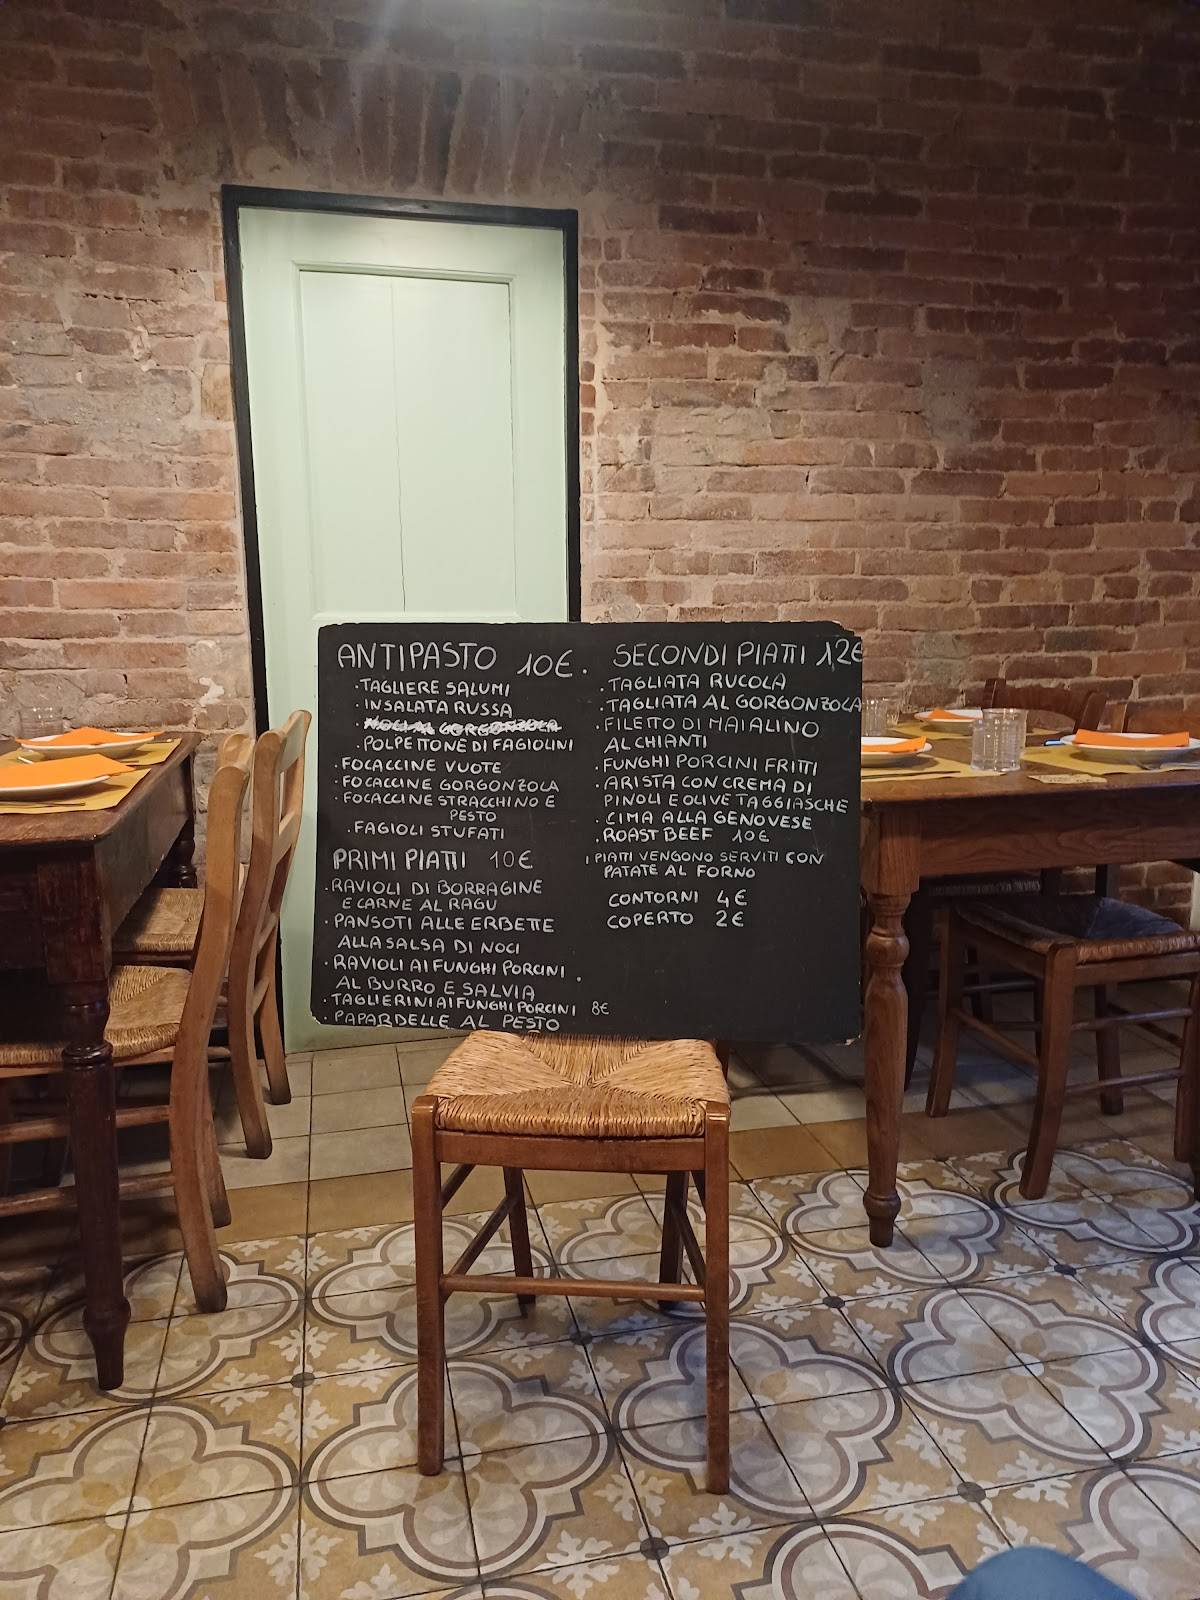 ANTIPASTO 10€.
. TAGLIERE SALUMI
. INSALATA RUSSA
NOCI AL GORGONZOLA
. POLPETTONE DI FAGIOLINI
. FOCACCINE VUOTE
. FOCACCINE GORGONZOLA
. FOCACCINE STRACCHINO E
PESTO
. FAGIOLI STUFATI
PRIMI PIATTI 10€
. RAVIOLI DI BORRAGINE
E CARNE AL RAGU
. PANSOTI ALLE ERBETTE
ALLA SALSA DI NOCI
. RAVIOLI AI FUNGHI PORCINI
AL BURRO E SALVIA
. TAGLIERINI AI FUNGHI PORCINI
. PAPARDELLE AL PESTO 8€
SECONDI PIATTI 12€
. TAGLIATA RUCOLA
. TAGLIATA AL GORGONZOLA
. FILETTO DI MAIALINO
AL CHIANTI
. FUNGHI PORCINI FRITTI
. ARISTA CON CREMA DI
PINOLI E OLIVE TAGGIASCHE
. CIMA ALLA GENOVESE
. ROAST BEEF 10€
I PIATTI VENGONO SERVITI CON
PATATE AL FORNO
CONTORNI 4€
COPERTO 2€